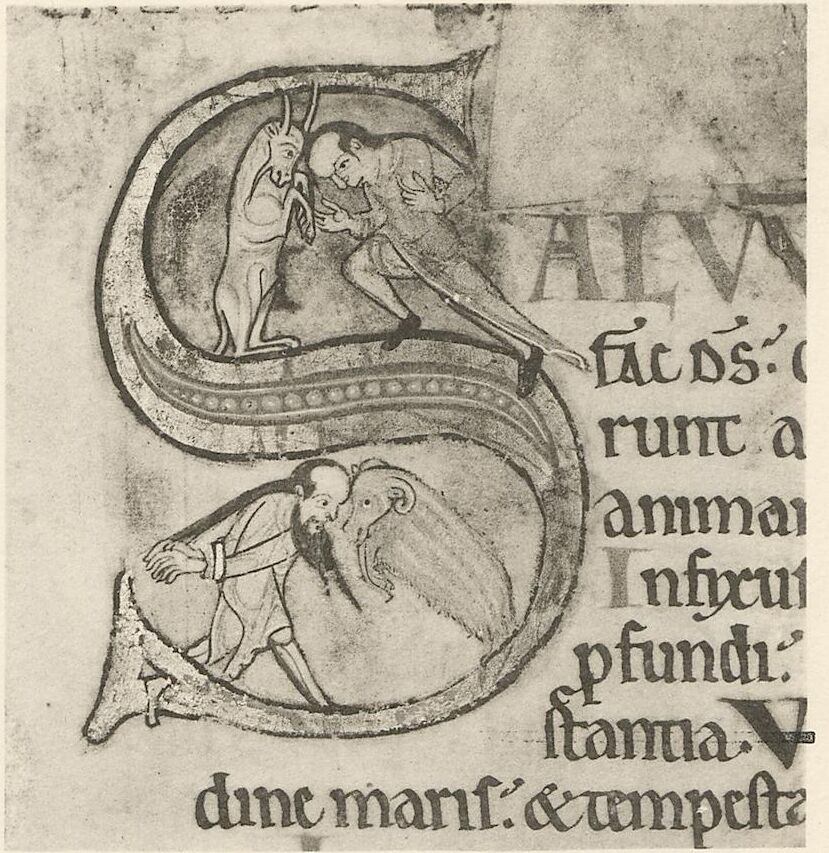 SALVV
fac d̄s: q
runt a
animam
Infixus
ꝓfundi:
stantia. V
dine maris: & tempesta